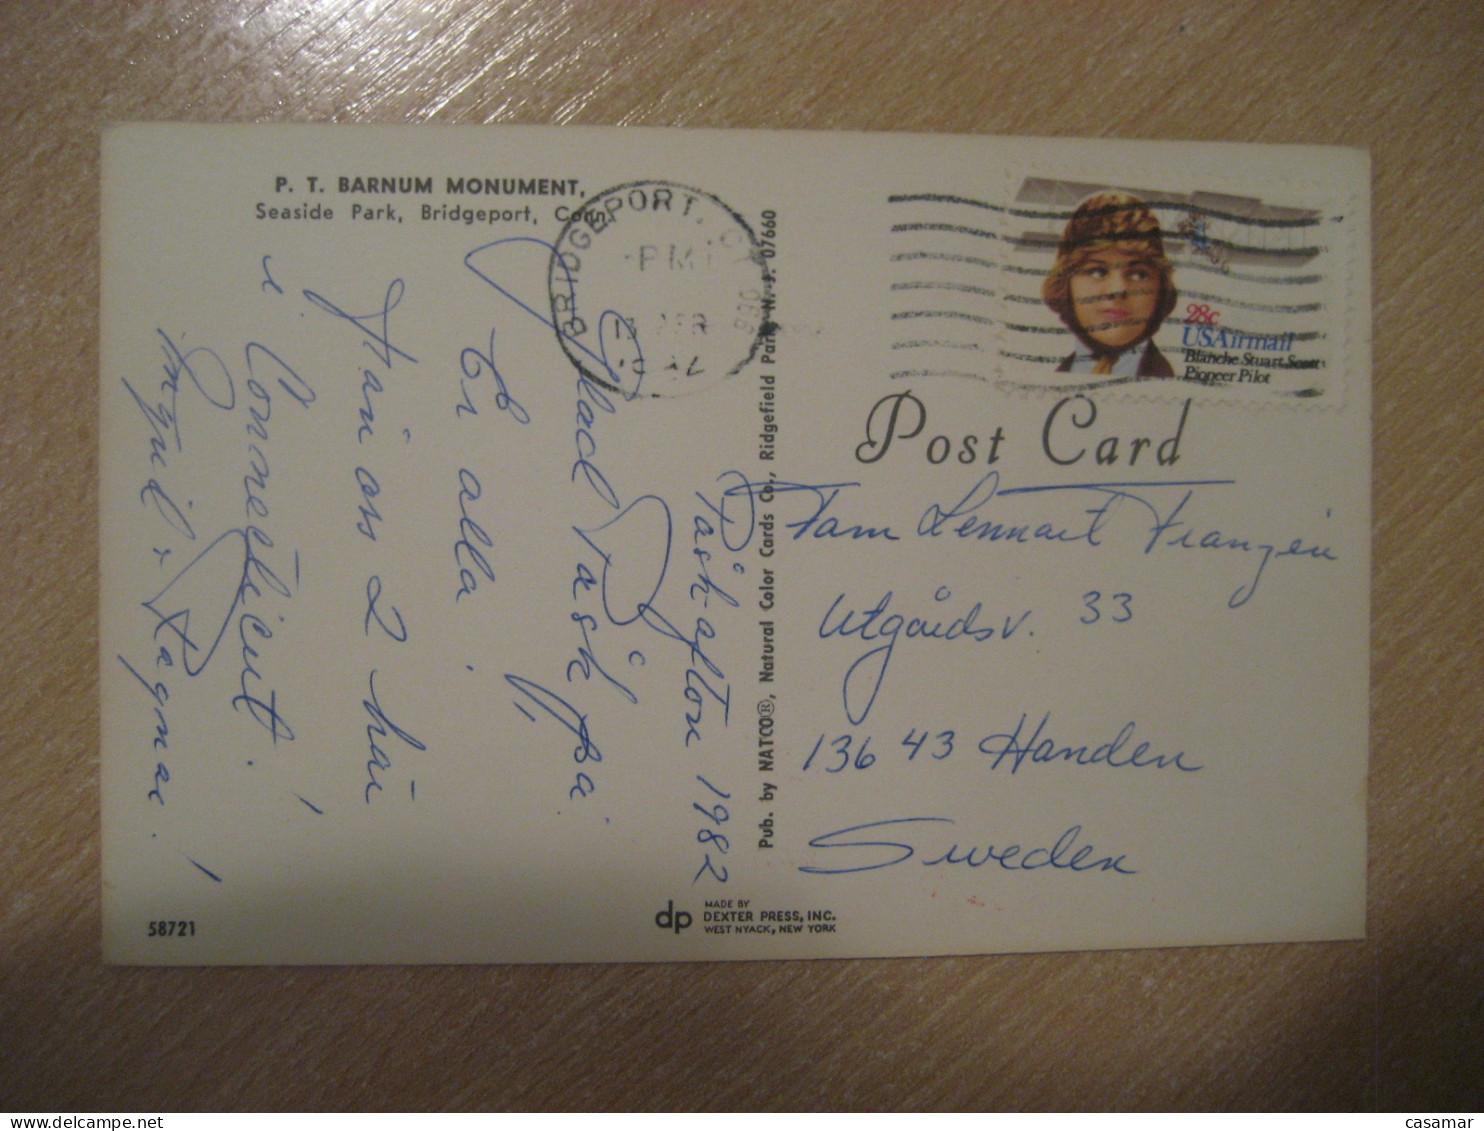 P. T. BARNUM MONUMENT,
Seaside Park, Bridgeport, Conn.
BRIDGEPORT, CT
PM
1982
28c
USAirmail
Blanche Stuart Scott
Pioneer Pilot
Post Card
Påsk-afton 1982
Glad Påsk på
Er alla
från oss 2 här
i Connecticut!
Ragnar!
Fam Lennart Franzén
Utgårdsv. 33
136 43 Handen
Sweden
Pub. by NATCO®, Natural Color Cards Co., Ridgefield Park, N. J. 07660
58721
dp
MADE BY
DEXTER PRESS, INC.
WEST NYACK, NEW YORK
casamar